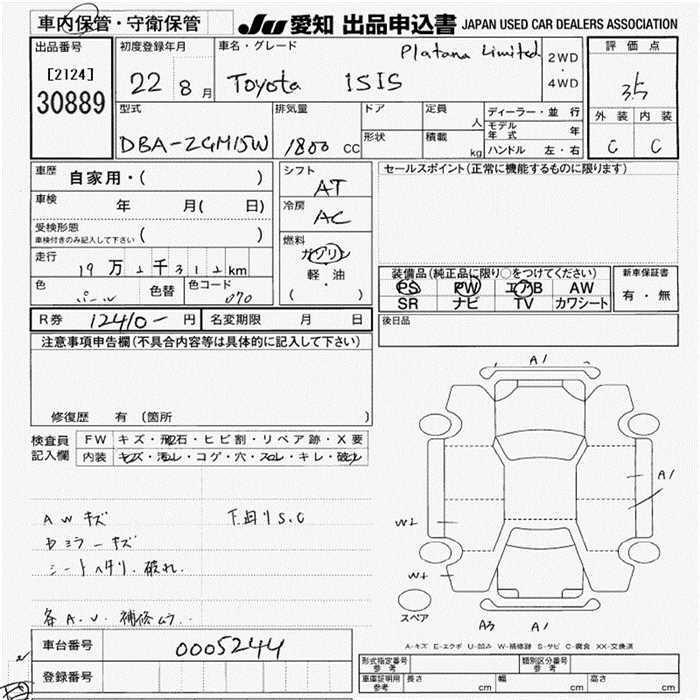 車内保管・守衛保管
JU 愛知 出品申込書 JAPAN USED CAR DEALERS ASSOCIATION
出品番号
[2124]
30889
初度登録年月
22 8月
車名・グレード
Platana Limited
Toyota ISIS
2WD
・
4WD
評価点
3.5
外装 内装
C C
型式
DBA-ZGM15W
排気量
1800 CC
ドア
形状
定員 人
積載 kg
ディーラー・並行
モデル年式 年
ハンドル 左・右
車歴 自家用・( )
車検 年 月( 日)
受検形態
車検付きのみ記入して下さい ( )
走行 19万2千312km
色 パール 色替
色コード 070
シフト
AT
冷房
AC
燃料
ガソリン
軽・油
( )
セールスポイント(正常に機能するものに限ります)
装備品(純正品に限り○をつけてください)
PS PW エアB AW
SR ナビ TV カワシート
新車保証書
有・無
R券 12410- 円 名変期限 月 日
後日品
注意事項申告欄(不具合内容等は具体的に記入して下さい)
修復歴 有 〔箇所
検査員
記入欄
FW キズ・飛石・ヒビ割・リペア跡・X要
内装 キズ・汚レ・コゲ・穴・スレ・キレ・破レ
AWキズ 下回りS.C
シートヘタリ、破れ.
各A.U. 補修ムラ..
A1
A1
W2
スペア
A3 A1
A-キズ E-エクボ U-凹み W-補修跡 S-サビ C-腐食 XX-交換済
車台番号 0005244
登録番号
形式指定番号
参考
類別区分番号
参考
車庫証明用
参考
長さ cm 幅 cm 高さ cm